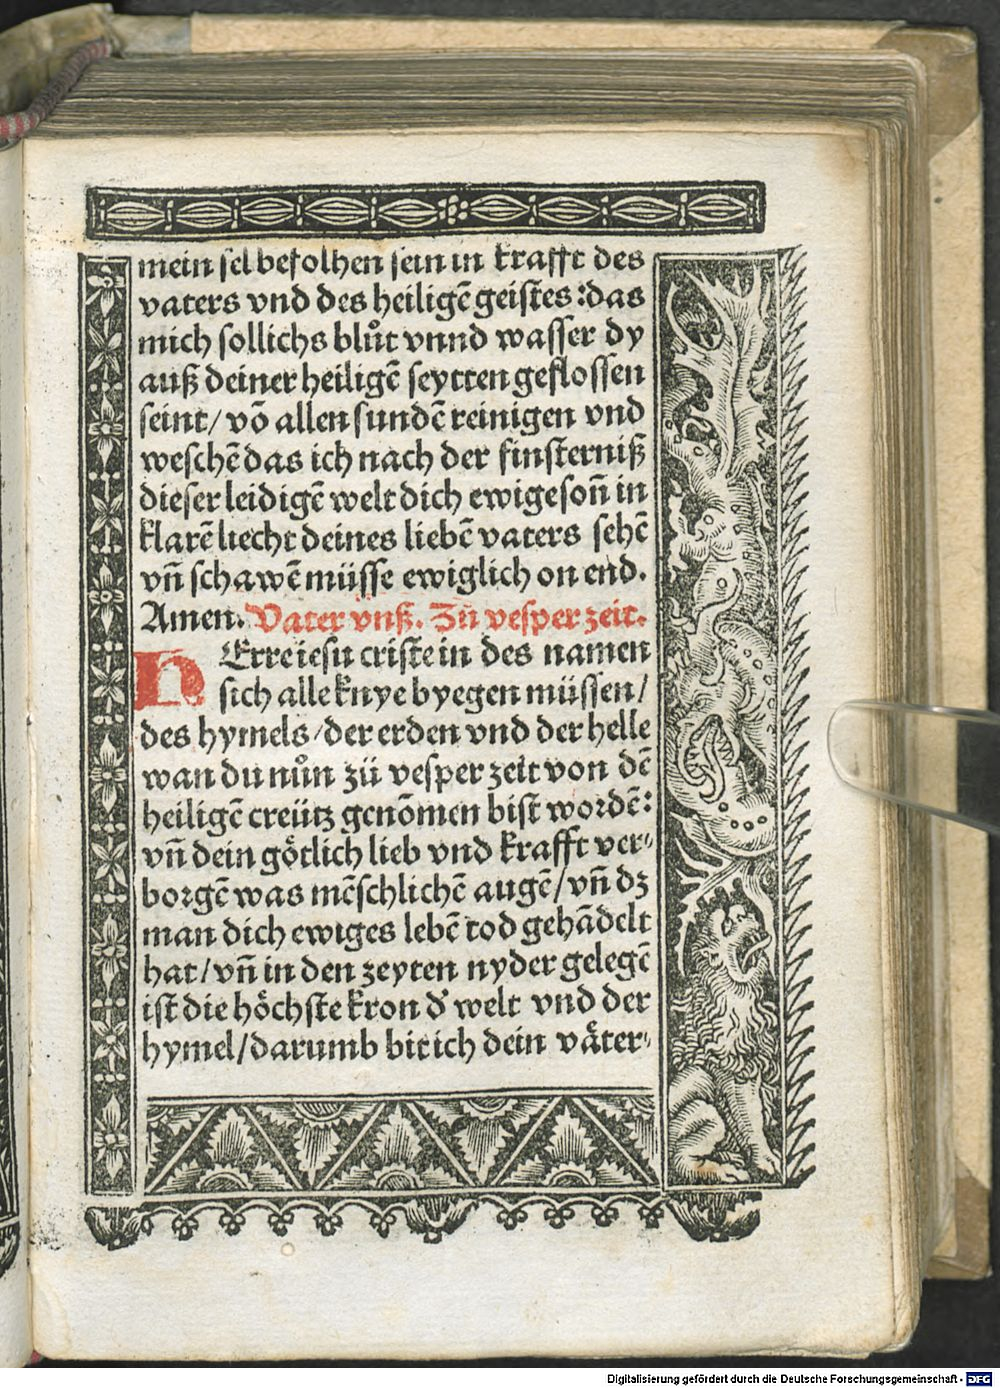 mein sel befolhen sein in krafft des
vaters vnd des heiligē geistes: das
mich sollichs blůt vnnd wasser dy
auß deiner heiligē seytten geflossen
seint/ võ allen sundē reinigen vnd
weschē das ich nach der finsterniß
dieser leidigē welt dich ewige son̄ in
klarē liecht deines liebē vaters sehē
vn̄ schawē müsse ewiglich on end.
Amen. Vater vnß. Zů vesper zeit.
HErre iesu criste in des namen
sich alle knye byegen müssen/
des hymels/ der erden vnd der helle
wan du nůn zü vesper zeit von dē
heiligē creütz genõmen bist wordē:
vn̄ dein gőtlich lieb vnd krafft ver⸗
borgē was mēschlichē augē/ vn̄ dz
man dich ewiges lebē tod gehādelt
hat/ vn̄ in den zeyten nyder gelegē
ist die hőchste kron d' welt vnd der
hymel/ darumb bit ich dein väter⸗
Digitalisierung gefördert durch die Deutsche Forschungsgemeinschaft - DFG